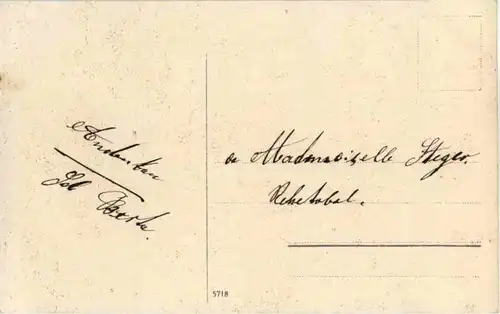 Andenken
Bertha.
a Mademoiselle Steger.
Rehetobel.
5718